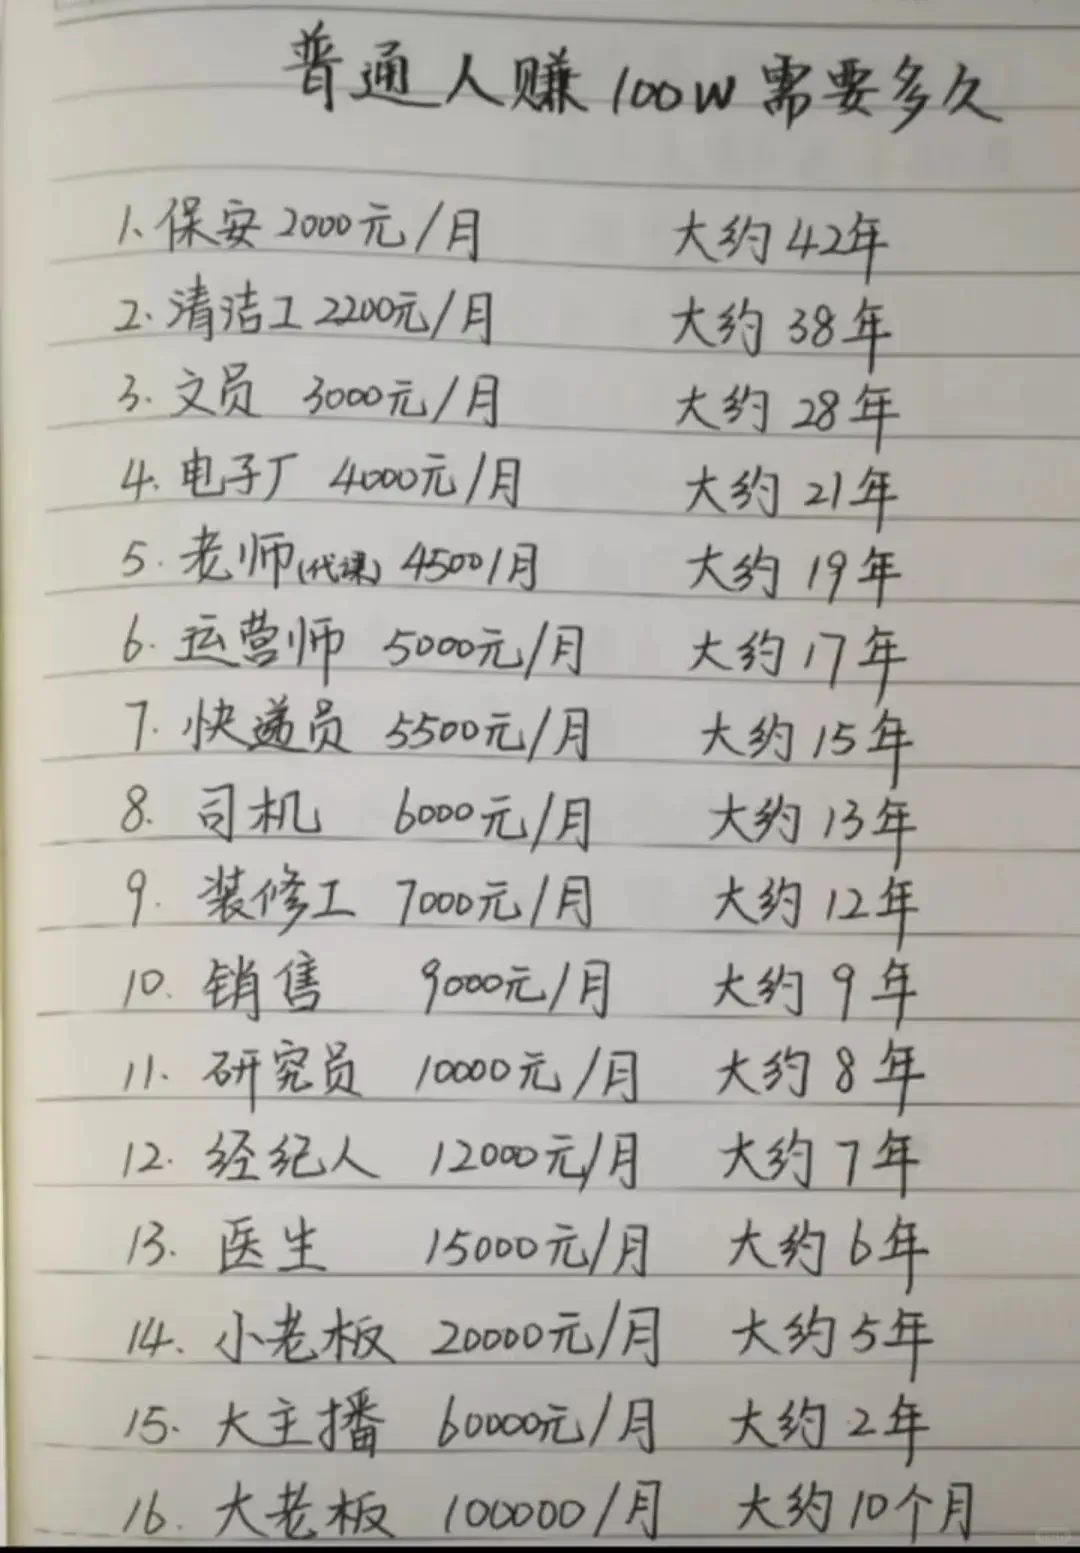 普通人赚100W需要多久
1.保安2000元/月 大约42年
2.清洁工2200元/月 大约38年
3.文员 3000元/月 大约28年
4.电子厂 4000元/月 大约21年
5.老师(代课) 4500/月 大约19年
6.运营师 5000元/月 大约17年
7.快递员 5500元/月 大约15年
8.司机 6000元/月 大约13年
9.装修工 7000元/月 大约12年
10.销售 9000元/月 大约9年
11.研究员 10000元/月 大约8年
12.经纪人 12000元/月 大约7年
13.医生 15000元/月 大约6年
14.小老板 20000元/月 大约5年
15.大主播 60000元/月 大约2年
16.大老板 100000/月 大约10个月